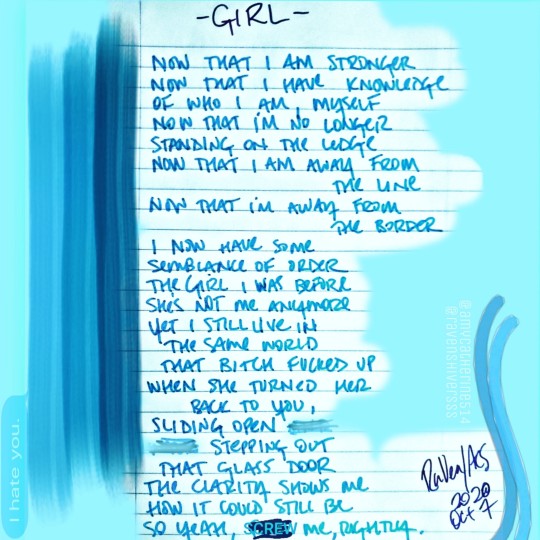 -GIRL-
NOW THAT I AM STRONGER
NOW THAT I HAVE KNOWLEDGE
OF WHO I AM, MYSELF
NOW THAT I'M NO LONGER
STANDING ON THE LEDGE
NOW THAT I AM AWAY FROM
THE LINE
NOW THAT I'M AWAY FROM
THE BORDER
I NOW HAVE SOME
SEMBLANCE OF ORDER
THE GIRL I WAS BEFORE
SHE'S NOT ME ANYMORE
YET I STILL LIVE IN
THE SAME WORLD
THAT BITCH FUCKED UP
WHEN SHE TURNED HER
BACK TO YOU,
SLIDING OPEN
STEPPING OUT
THAT GLASS DOOR
THE CLARITY SHOWS ME
HOW IT COULD STILL BE
SO YEAH, SCREW ME, RIGHTLY.
Raven/AS
2020
Oct 7
@ravenshiversss
I hate you.